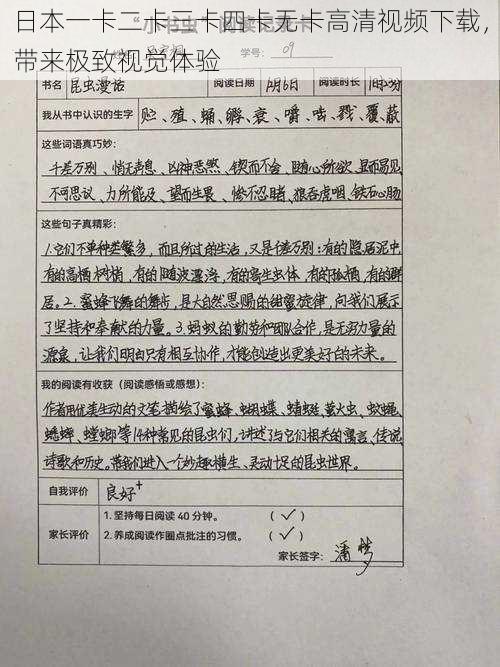 日本一卡二卡三卡四卡无卡高清视频下载，
带来极致视觉体验
学号： 09
书名 昆虫漫话 阅读日期 阅读时长
我从书中认识的生字 贮、殖、蛹、孵、衰、嚼、啮、戮、覆、蔽
这些词语真巧妙：
千差万别、悄无声息、凶神恶煞、锲而不舍、随心所欲、显而易见、
不可思议、力所能及、望而生畏、惨不忍睹、狼吞虎咽、铁石心肠
这些句子真精彩：
1.它们不单种类繁多，而且所过的生活，又是千差万别：有的隐居泥中，
有的高栖树梢，有的随波漂浮，有的寄生虫体，有的孤栖，有的群
居。2.蜜蜂飞舞的舞步，是大自然恩赐的甜蜜旋律，向我们展示
了坚持和奉献的力量。3.蚂蚁的勤劳和团队合作，是无穷力量的
源泉，让我们明白只有相互协作，才能创造出更美好的未来。
我的阅读有收获（阅读感悟或感想）：
作者用优美生动的文笔描绘了蜜蜂、蝴蝶、蜻蜓、萤火虫、蚊蝇、
蟋蟀、螳螂等14种常见的昆虫们，讲述了与它们相关的寓言、传说、
诗歌和历史。带我们进入一个妙趣横生、灵动十足的昆虫世界。
自我评价 良好+
1. 坚持每日阅读 40 分钟。 （ ✓ ）
家长评价 2. 养成阅读作圈点批注的习惯。 （ ✓ ）
家长签字： 潘